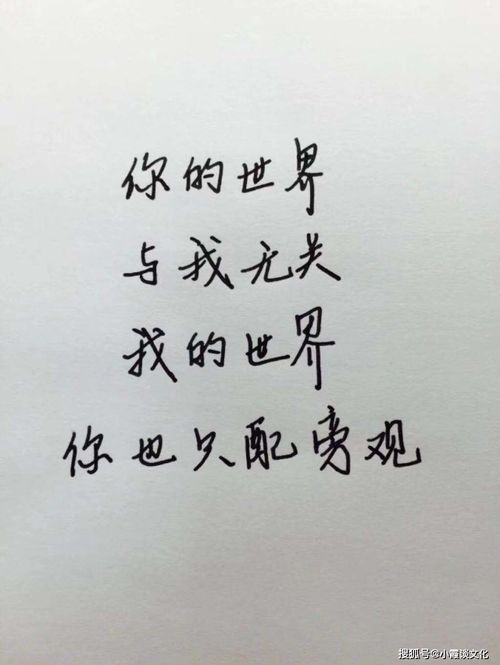 你的世界
与我无关
我的世界
你也只配旁观
搜狐号@小霞谈文化